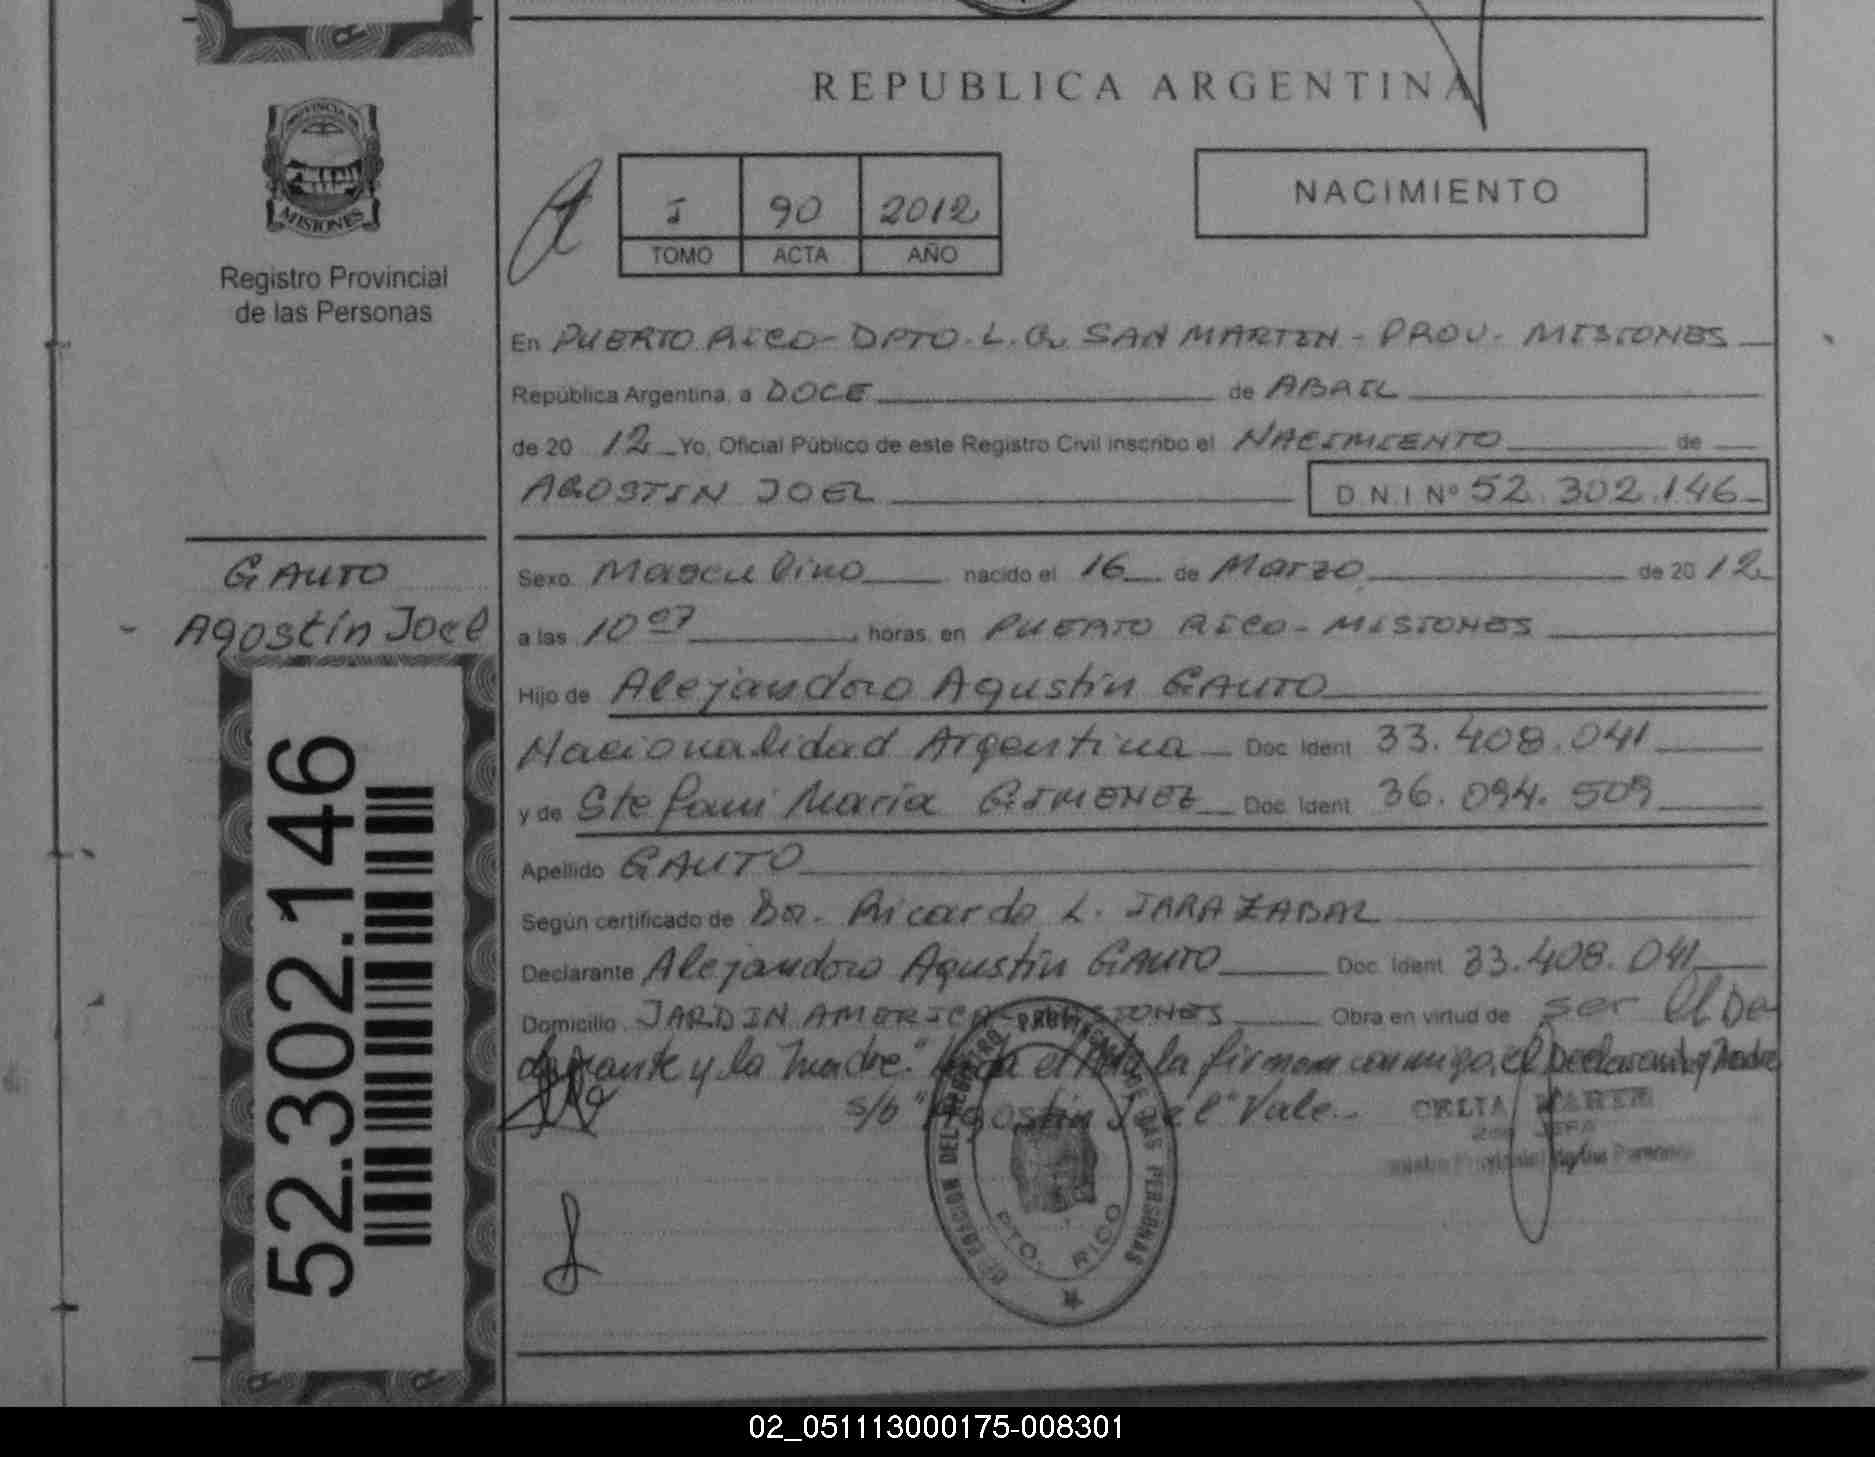 PROVINCIA DE
MISIONES
Registro Provincial
de las Personas
REPUBLICA ARGENTINA
I 90 2012
TOMO ACTA AÑO
NACIMIENTO
En PUERTO RICO - DPTO. L. G. SAN MARTIN - PROV. MISIONES
República Argentina, a DOCE de ABRIL
de 20 12 Yo, Oficial Público de este Registro Civil inscribo el NACIMIENTO de
AGOSTIN JOEL D.N.I Nº 52.302.146
GAUTO
Agostín Joel
52.302.146
Sexo Masculino nacido el 16 de Marzo de 20 12
a las 10 07 horas, en PUERTO RICO - MISIONES
Hijo de Alejandro Agustín GAUTO
Nacionalidad Argentina Doc. Ident. 33.408.041
y de Stefani María GIMENEZ Doc. Ident. 36.094.509
Apellido GAUTO
Según certificado de Dr. Ricardo L. IARAZABAL
Declarante Alejandro Agustín GAUTO Doc. Ident. 33.408.041
Domicilio JARDIN AMERICA - MISIONES Obra en virtud de ser el De
clarante y la Madre." Leída el Acta la firman conmigo, el Declarante y Madre
s/b "Agostín Joel" Vale.
CELIA
Registro Provincial de las Personas
DELEGACION DEL REGISTRO PROVINCIAL DE LAS PERSONAS
PTO. RICO
02_051113000175-008301